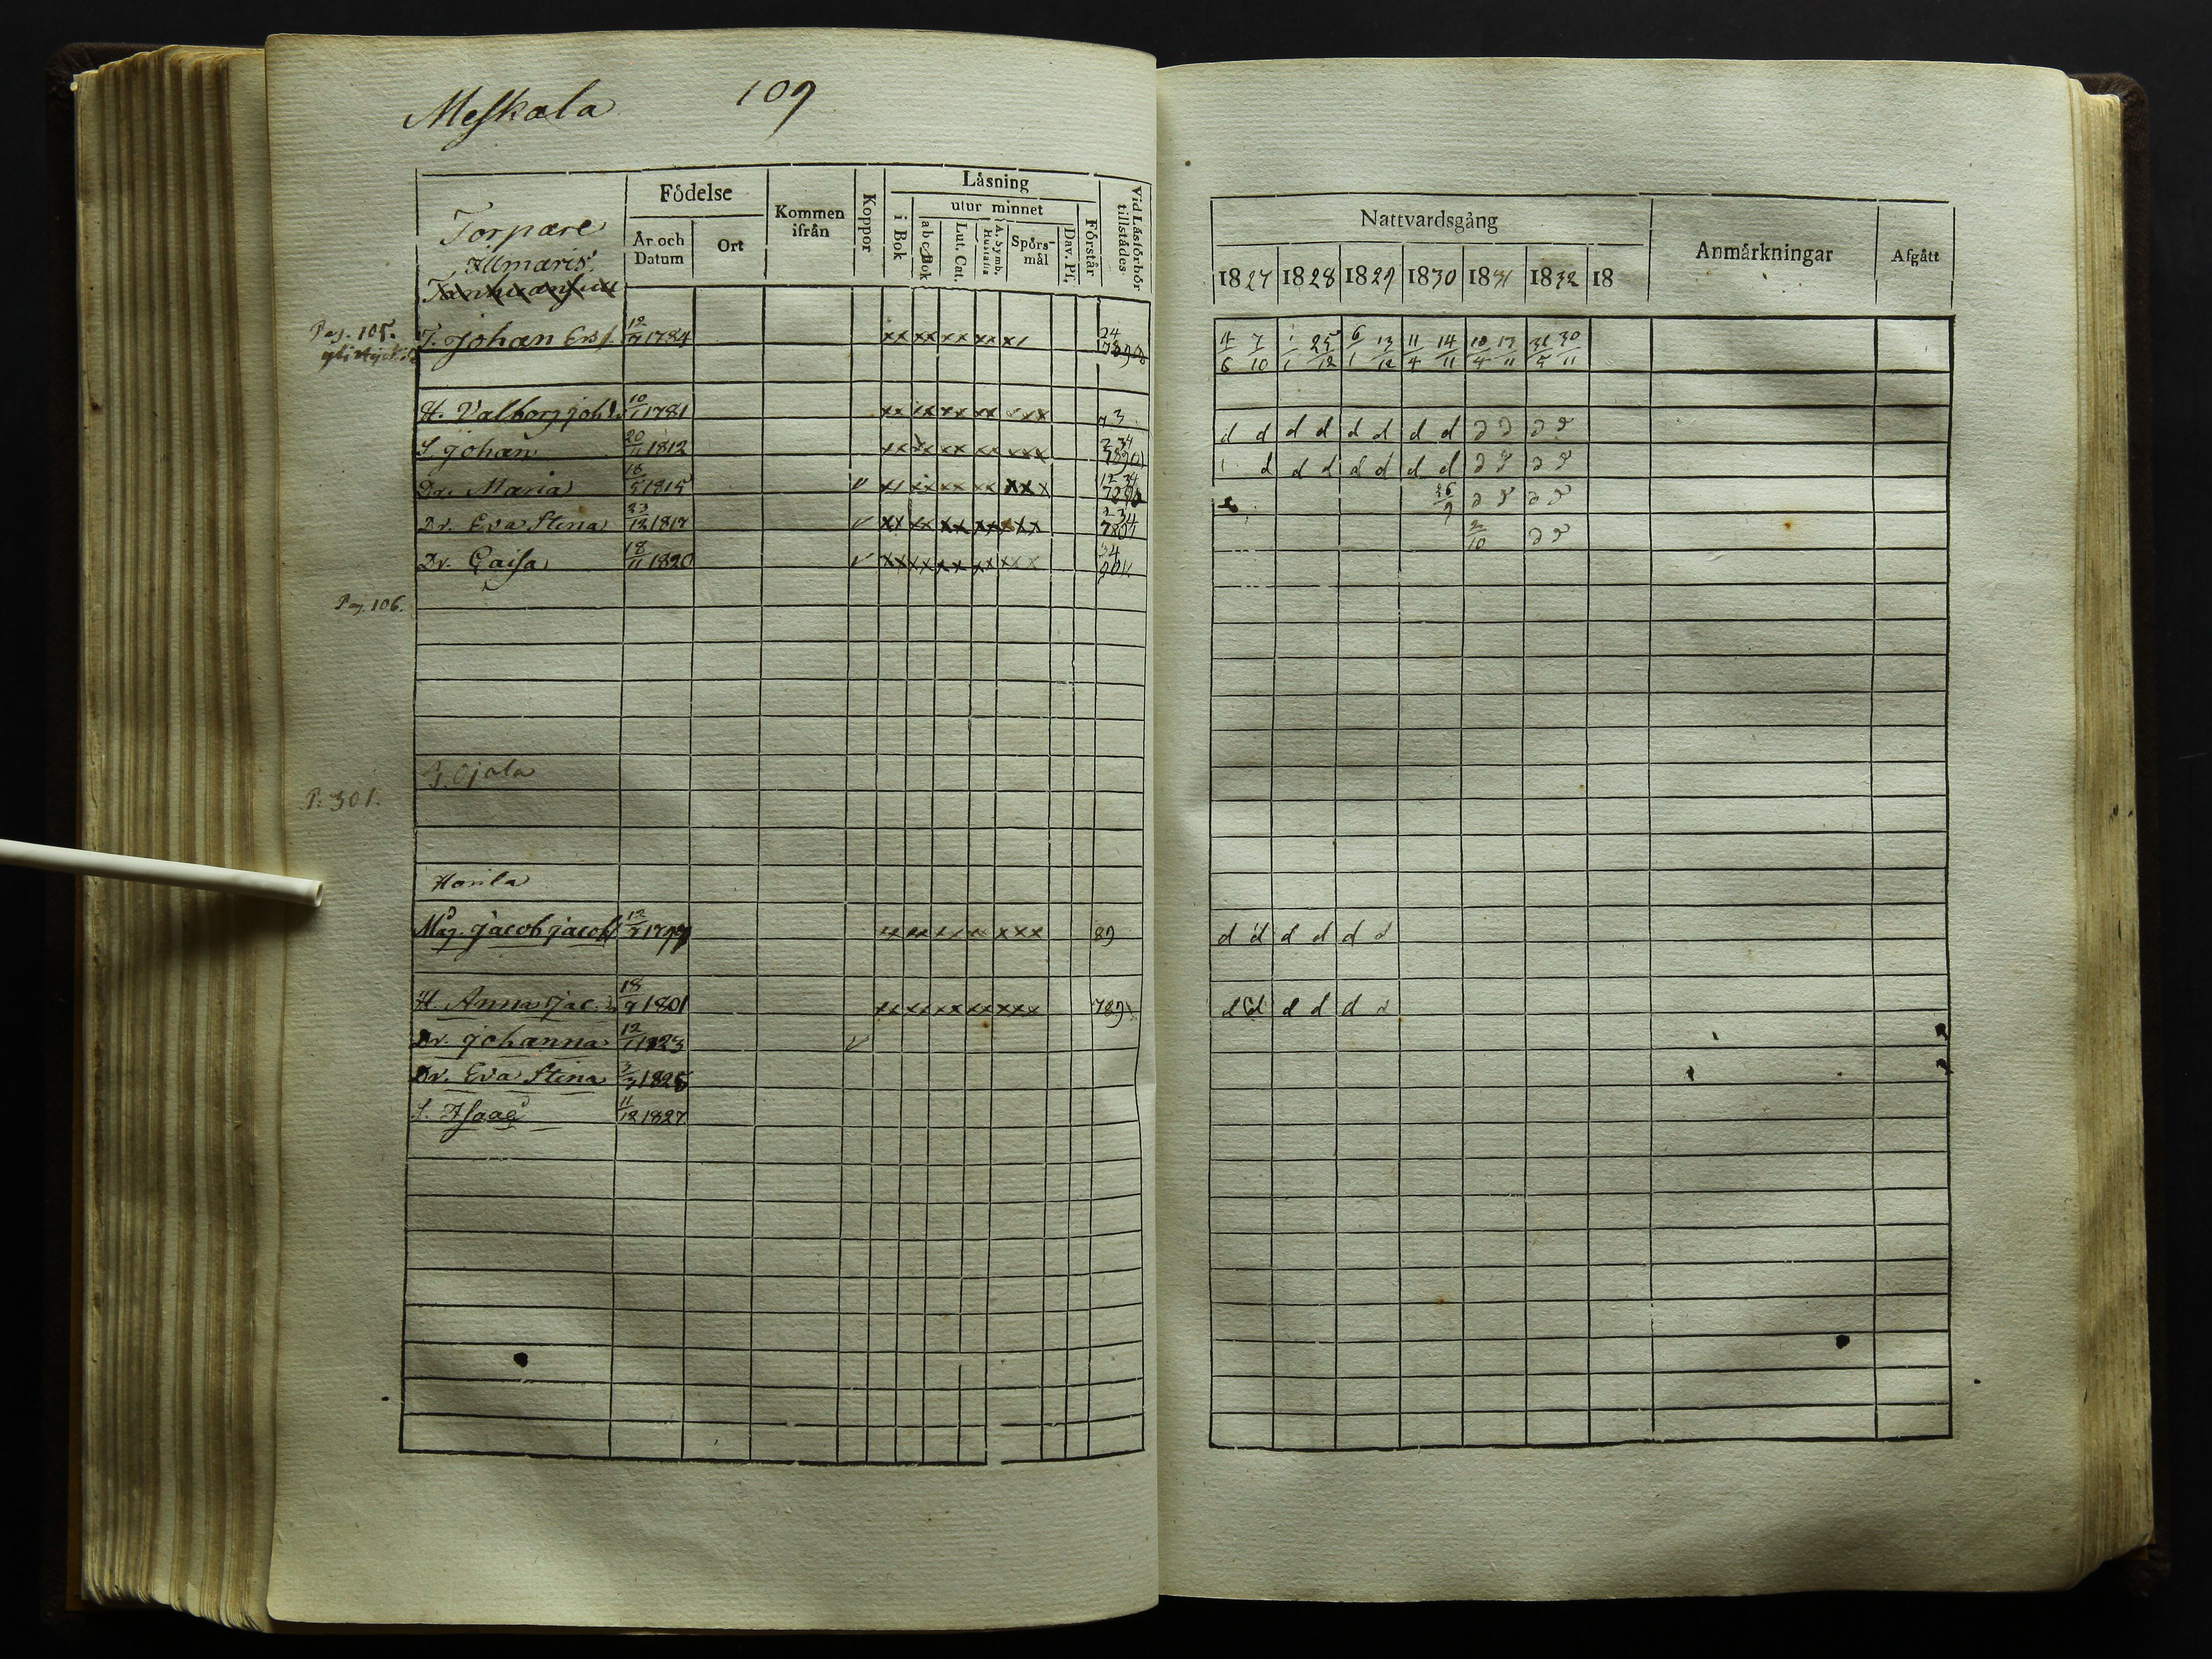 Meskala 109
Torpare
Ilmaris
Födelse
År och Datum
Ort
Kommen ifrån
Koppor
Läsning
i Bok
utur minnet
abc Bok
Lut. Cat.
A. Symb. Hustafla
Spörs-mål
Dav. Ps.
Förstår
Vid Läsförhör tillstädes
Nattvardsgång
1827 1828 1829 1830 1831 1832 18
Anmärkningar
Afgått
Pag. 105. T. Johan Ersf. 12/7 1784 xx xx xx xx x/ 4/6 7/10 1/1 25/12 6/1 13/12 11/4 14/11 10/4 13/11 31/5 30/11
H. Valborg Joh.dr 10/1 1781 xx xx xx xx xxx 7 3 d d d d d d d d d d d d
S. Johan 20/11 1812 xx xx xx xx xxx 234 d d d d d d d d d d d
Dr. Maria 16/5 1815 v x/ xx xx xx xxx 1234 26/9 d d d d
Dr. Eva Stina 23/12 1817 v xx xx xx xx xxx 234 2/10 d d
Dr. Caisa 18/11 1820 v xx xx xx xx xxx 34
Pag. 106.
Ojala
P. 301.
Harila
Måg. Jacob Jacobs 12/7 1799 xx xx xx xx xxx 89 d d d d d d
H. Anna Jac.dr 18/7 1801 xx xx xx xx xxx 789 d d d d d d
Dr. Johanna 12/1 1823 v
Dr. Eva Stina 3/3 1825
S. Isaac 11/12 1827